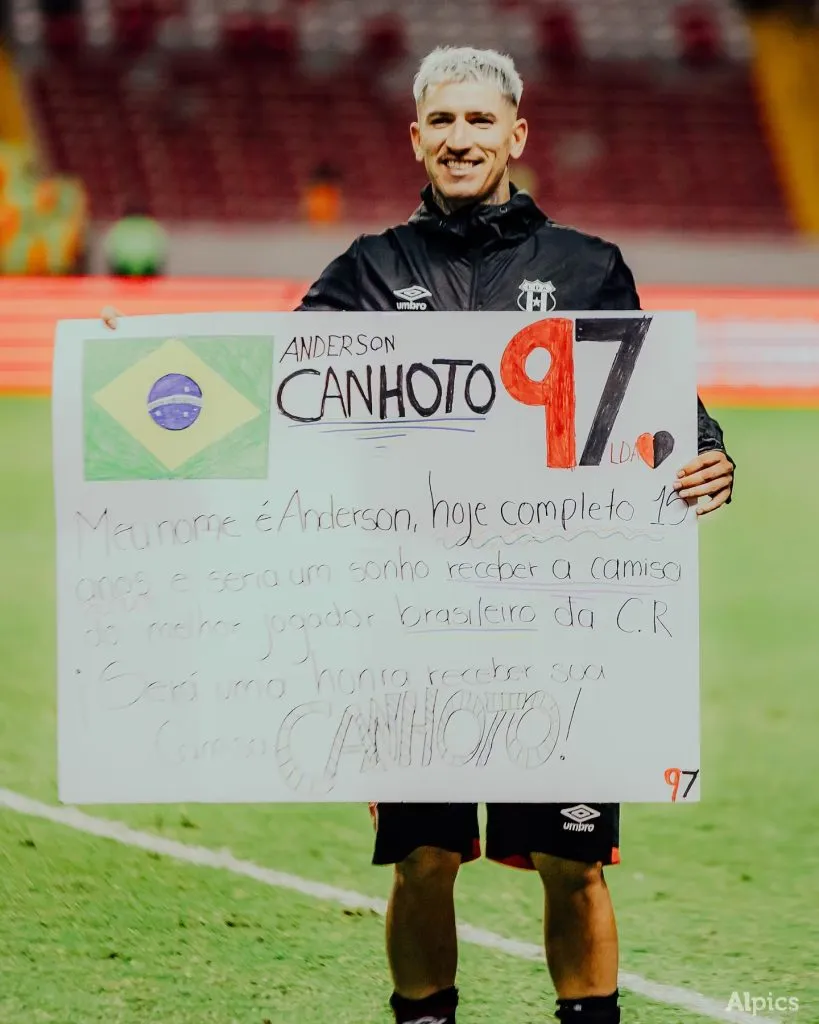 umbro
LDA
ANDERSON
CANHOTO
97
LDA
Meu nome é Anderson, hoje completo 15
anos e seria um sonho receber a camisa
do melhor jogador brasileiro da C.R
¡Será uma honra receber sua
Camisa CANHOTO!
97
umbro
Alpics